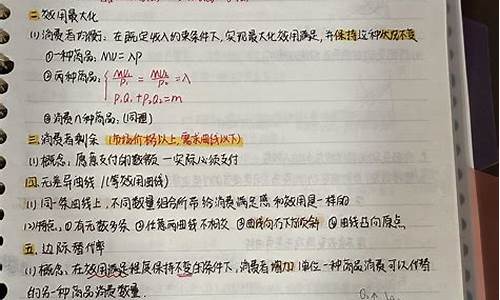 二.效用最大化
(1)消费者均衡: 在既定收入约束条件下,实现最大化效用满足,并保持这种状态不变
①一种商品: MU=λP
②两种商品: { MU₁/P₁ = MU₂/P₂ = λ
P₁Q₁+P₂Q₂=m
③消费n种商品:(同理)
三.消费者剩余 (市场价格以上,需求曲线以下)
(1)概念: 愿意支付的数额 — 实际必须支付
四.无差异曲线 (等效用曲线)
(1)同一条曲线上,不同数量组合所带给消费满足感和效用是一样的
(2)特点: ①有无数多条 ②任意两曲线不相交 ③曲线向右下方倾斜 ④曲线凸向原点
五.边际替代率
(1)概念: 在效用满足程度保持不变的条件下,消费者增加1单位一种商品消费可以代替
的另一种商品消费数量.